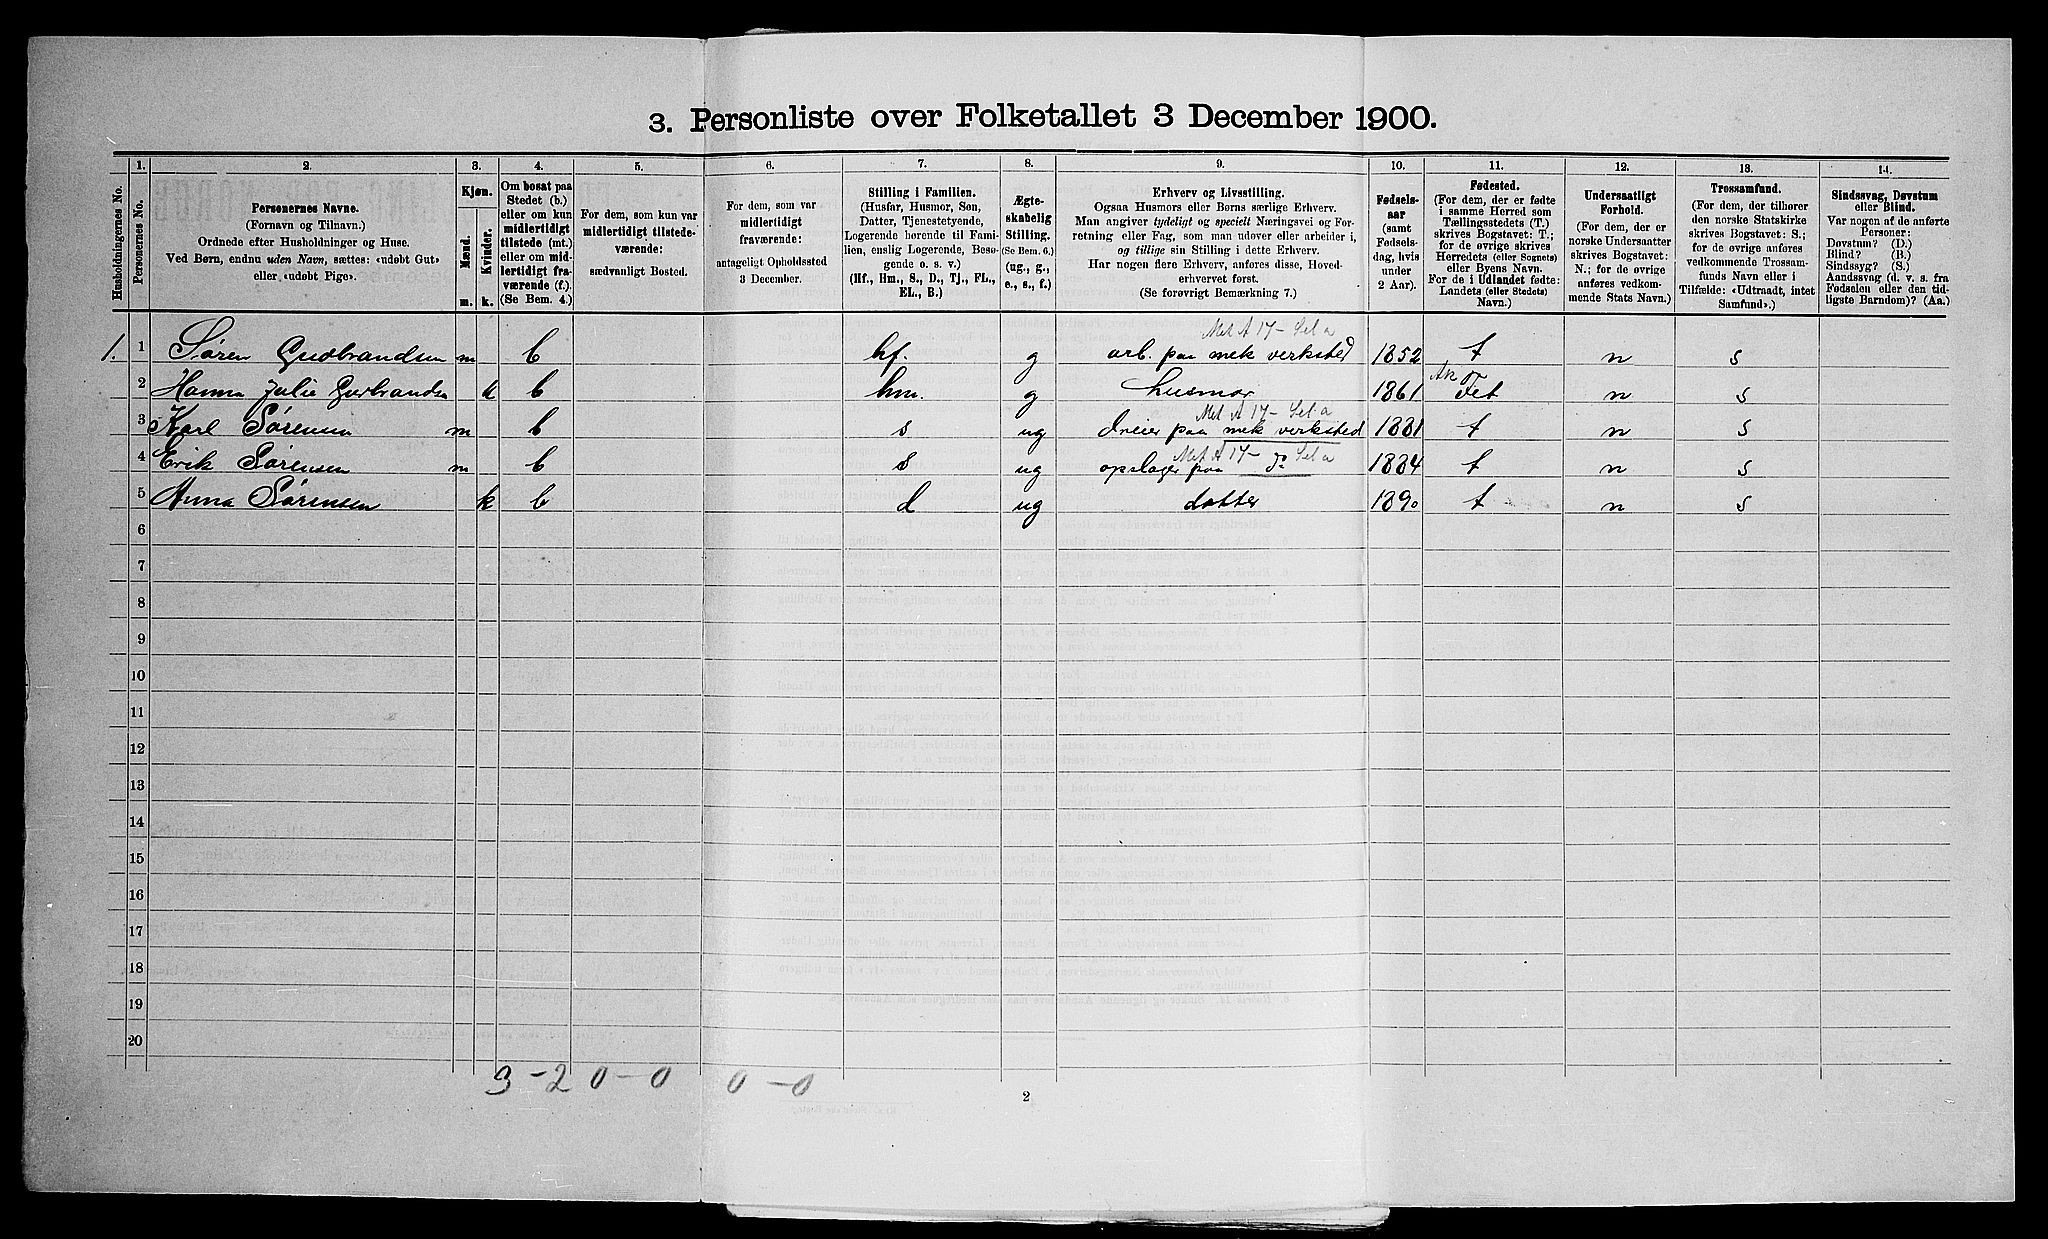 3. Personliste over Folketallet 3 December 1900.
Husholdningernes No.
1.
Personernes No.
2.
Personernes Navne.
(Fornavn og Tilnavn.)
Ordnede efter Husholdninger og Huse.
Ved Børn, endnu uden Navn, sættes: «udøbt Gut»
eller «udøbt Pige».
3.
Kjøn.
Mænd.
Kvinder.
m.
k.
4.
Om bosat paa
Stedet (b.)
eller om kun
midlertidigt
tilstede (mt.)
eller om mid-
lertidigt fra-
værende (f.).
(Se Bem. 4.)
5.
For dem, som kun var
midlertidigt tilstede-
værende:
sædvanligt Bosted.
6.
For dem, som var
midlertidigt
fraværende:
antageligt Opholdssted
3 December.
7.
Stilling i Familien.
(Husfar, Husmor, Søn,
Datter, Tjenestetyende,
Logerende hørende til Fami-
lien, enslig Logerende, Besø-
gende o. s. v.)
(Hf., Hm., S., D., Tj., FL.,
EL., B.)
8.
Ægte-
skabelig
Stilling.
(Se Bem. 6.)
(ug., g.,
e., s., f.)
9.
Erhverv og Livsstilling.
Ogsaa Husmors eller Børns særlige Erhverv.
Man angiver tydeligt og specielt Næringsvei og For-
retning eller Fag, som man udover eller arbeider i,
og tillige sin Stilling i dette Erhverv.
Har nogen flere Erhverv, anføres disse, Hoved-
erhvervet først.
(Se forøvrigt Bemærkning 7.)
10.
Fødsels-
aar
(samt
Fødsels-
dag, hvis
under
2 Aar).
11.
Fødested.
(For dem, der er fødte
i samme Herred som
Tællingsstedets (T.)
skrives Bogstavet: T.;
for de øvrige skrives
Herredets (eller Sognets)
eller Byens Navn.
For de i Udlandet fødte:
Landets (eller Stedets)
Navn.)
12.
Undersaatligt
Forhold.
(For dem, der er
norske Undersaatter
skrives Bogstavet:
N.; for de øvrige
anføres vedkom-
mende Stats Navn.)
13.
Trossamfund.
(For dem, der tilhører
den norske Statskirke
skrives Bogstavet: S.;
for de øvrige anføres
vedkommende Trossam-
funds Navn eller i
Tilfælde: «Udtraadt, intet
Samfund».)
14.
Sindssvag, Døvstum
eller Blind.
Var nogen af de anførte
Personer:
Døvstum? (D.)
Blind? (B.)
Sindssyg? (S.)
Aandssvag (d. v. s. fra
Fødselen eller den tid-
ligste Barndom)? (Aa.)
Met A 17 – Sel a
1. 1 Søren Gudbrandsen m b hf. g arb. paa mek verksted 1852 t n s
Ak
2 Hanna Julie Gudbrandsen k b hm. g husmor 1861 n s
Met A 17 – Sel a
3 Karl Sørensen m b s ug dreier paa mek verksted 1881 t n s
Met A 17 – Sel a
4 Erik Sørensen m b s ug opslager paa do 1884 t n s
5 Anna Sørensen k b d ug datter 1890 t n s
6
7
8
9
10
11
12
13
14
15
16
17
18
19
20
3 – 2 0 – 0 0 – 0
2